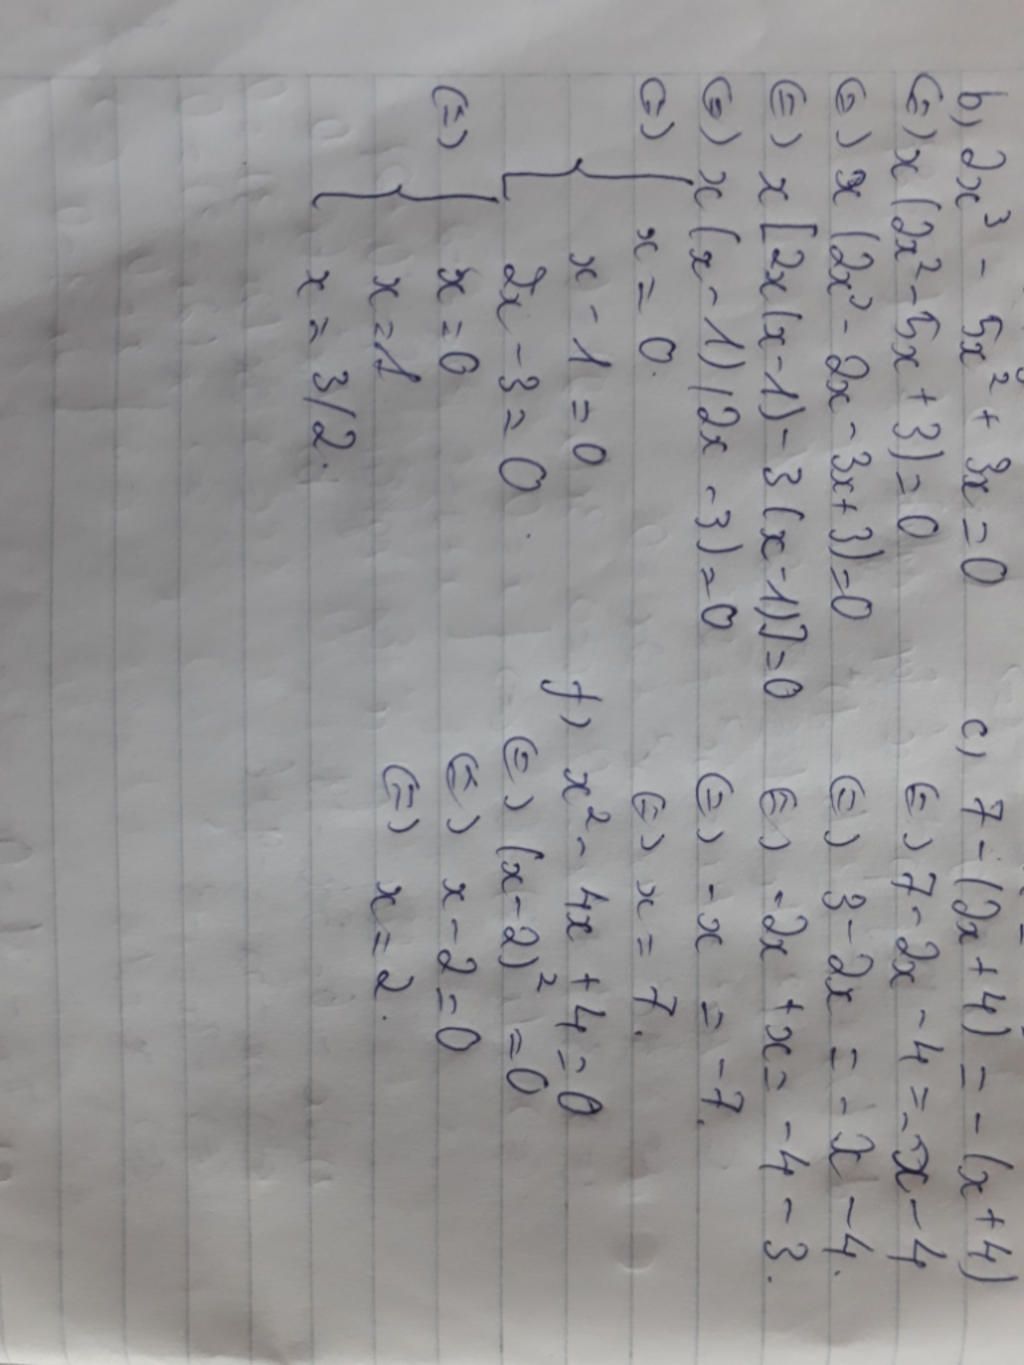 b) 2x³ - 5x² + 3x = 0
(=) x (2x² - 5x + 3) = 0
(=) x (2x² - 2x - 3x + 3) = 0
(=) x [2x(x-1) - 3(x-1)] = 0
(=) x (x-1) (2x-3) = 0
(=) { x = 0.
x - 1 = 0
2x - 3 = 0.
(=) { x = 0
x = 1
x = 3/2.
c) 7 - (2x + 4) = - (x + 4)
(=) 7 - 2x - 4 = - x - 4
(=) 3 - 2x = - x - 4.
(=) -2x + x = -4 - 3.
(=) -x = -7.
(=) x = 7.
f) x² - 4x + 4 = 0
(=) (x-2)² = 0
(=) x - 2 = 0
(=) x = 2.